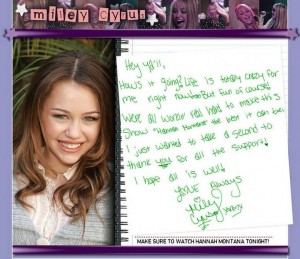 miley Cyrus
Hey ya'll,
Hows it going? Life is totally crazy for
me right now!! But fun of course!
We're all workin real hard to make this
Show "Hannah Montana" the best it can be!
I just wanted to take a second to
thank you for all the support!
I hope all is well!
Love always
Miley
Cyrus
MAKE SURE TO WATCH HANNAH MONTANA TONIGHT!